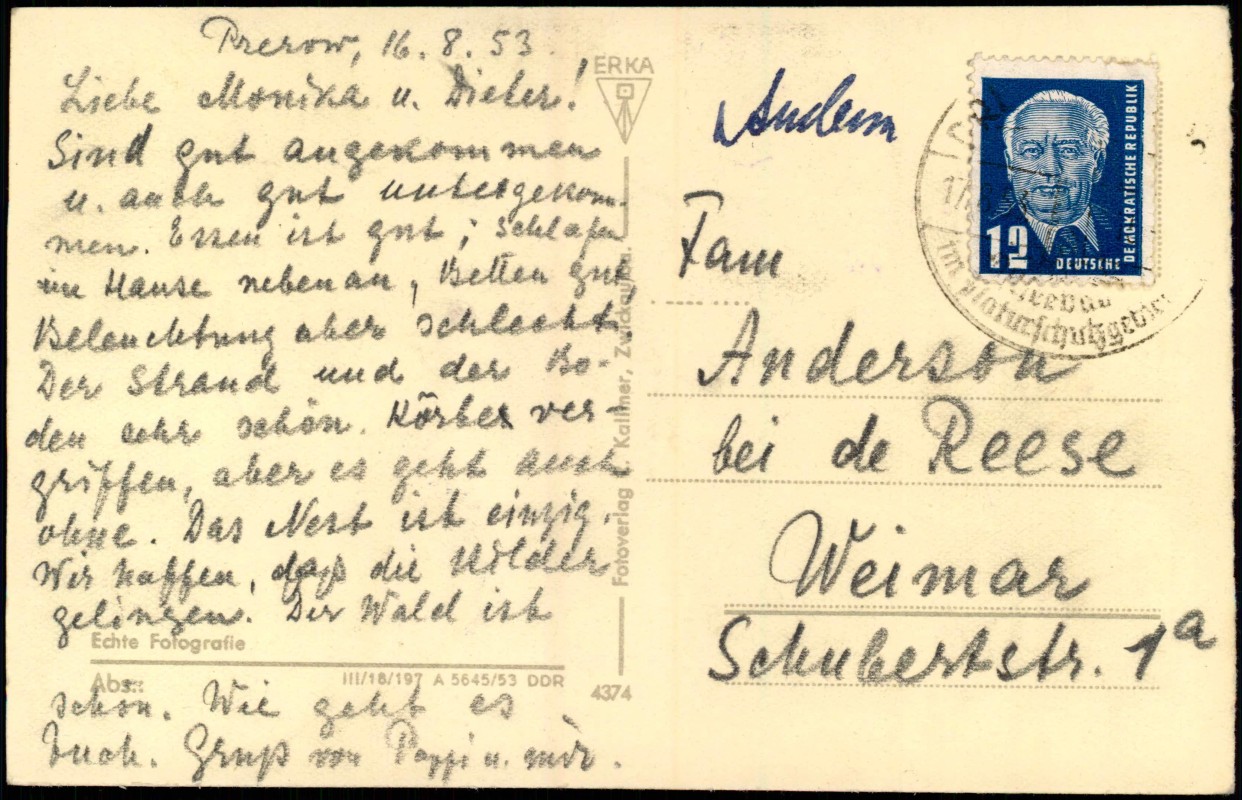 Prerow, 16. 8. 53.
Liebe Monika u. Dieter!
Sind gut angekommen
u. auch gut untergekom-
men. Essen ist gut; schlafen
im Hause nebenan, Betten gut
Beleuchtung aber schlecht.
Der Strand und der Bo-
den sehr schön. Körbe ver-
griffen, aber es geht auch
ohne. Das Nest ist einzig.
Wir hoffen, daß die Bilder
gelingen. Der Wald ist
schön. Wie geht es
Euch. Gruß von Pappi u. mir.
Echte Fotografie
Abs.:
III/18/197 A 5645/53 DDR
4374
ERKA
Fotoverlag Kallmer, Zwickau
12
DEUTSCHE
DEMOKRATISCHE REPUBLIK
im Naturschutzgebiet
Fam
Anderson
bei de Reese
Weimar
Schubertstr. 1a